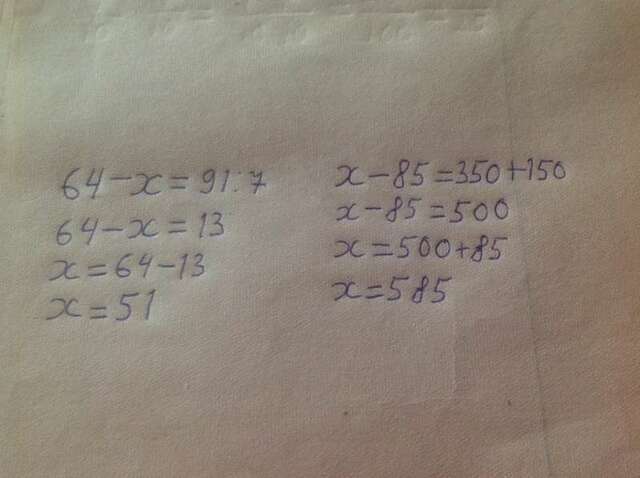 64-x=91:7
64-x=13
x=64-13
x=51
x-85=350+150
x-85=500
x=500+85
x=585